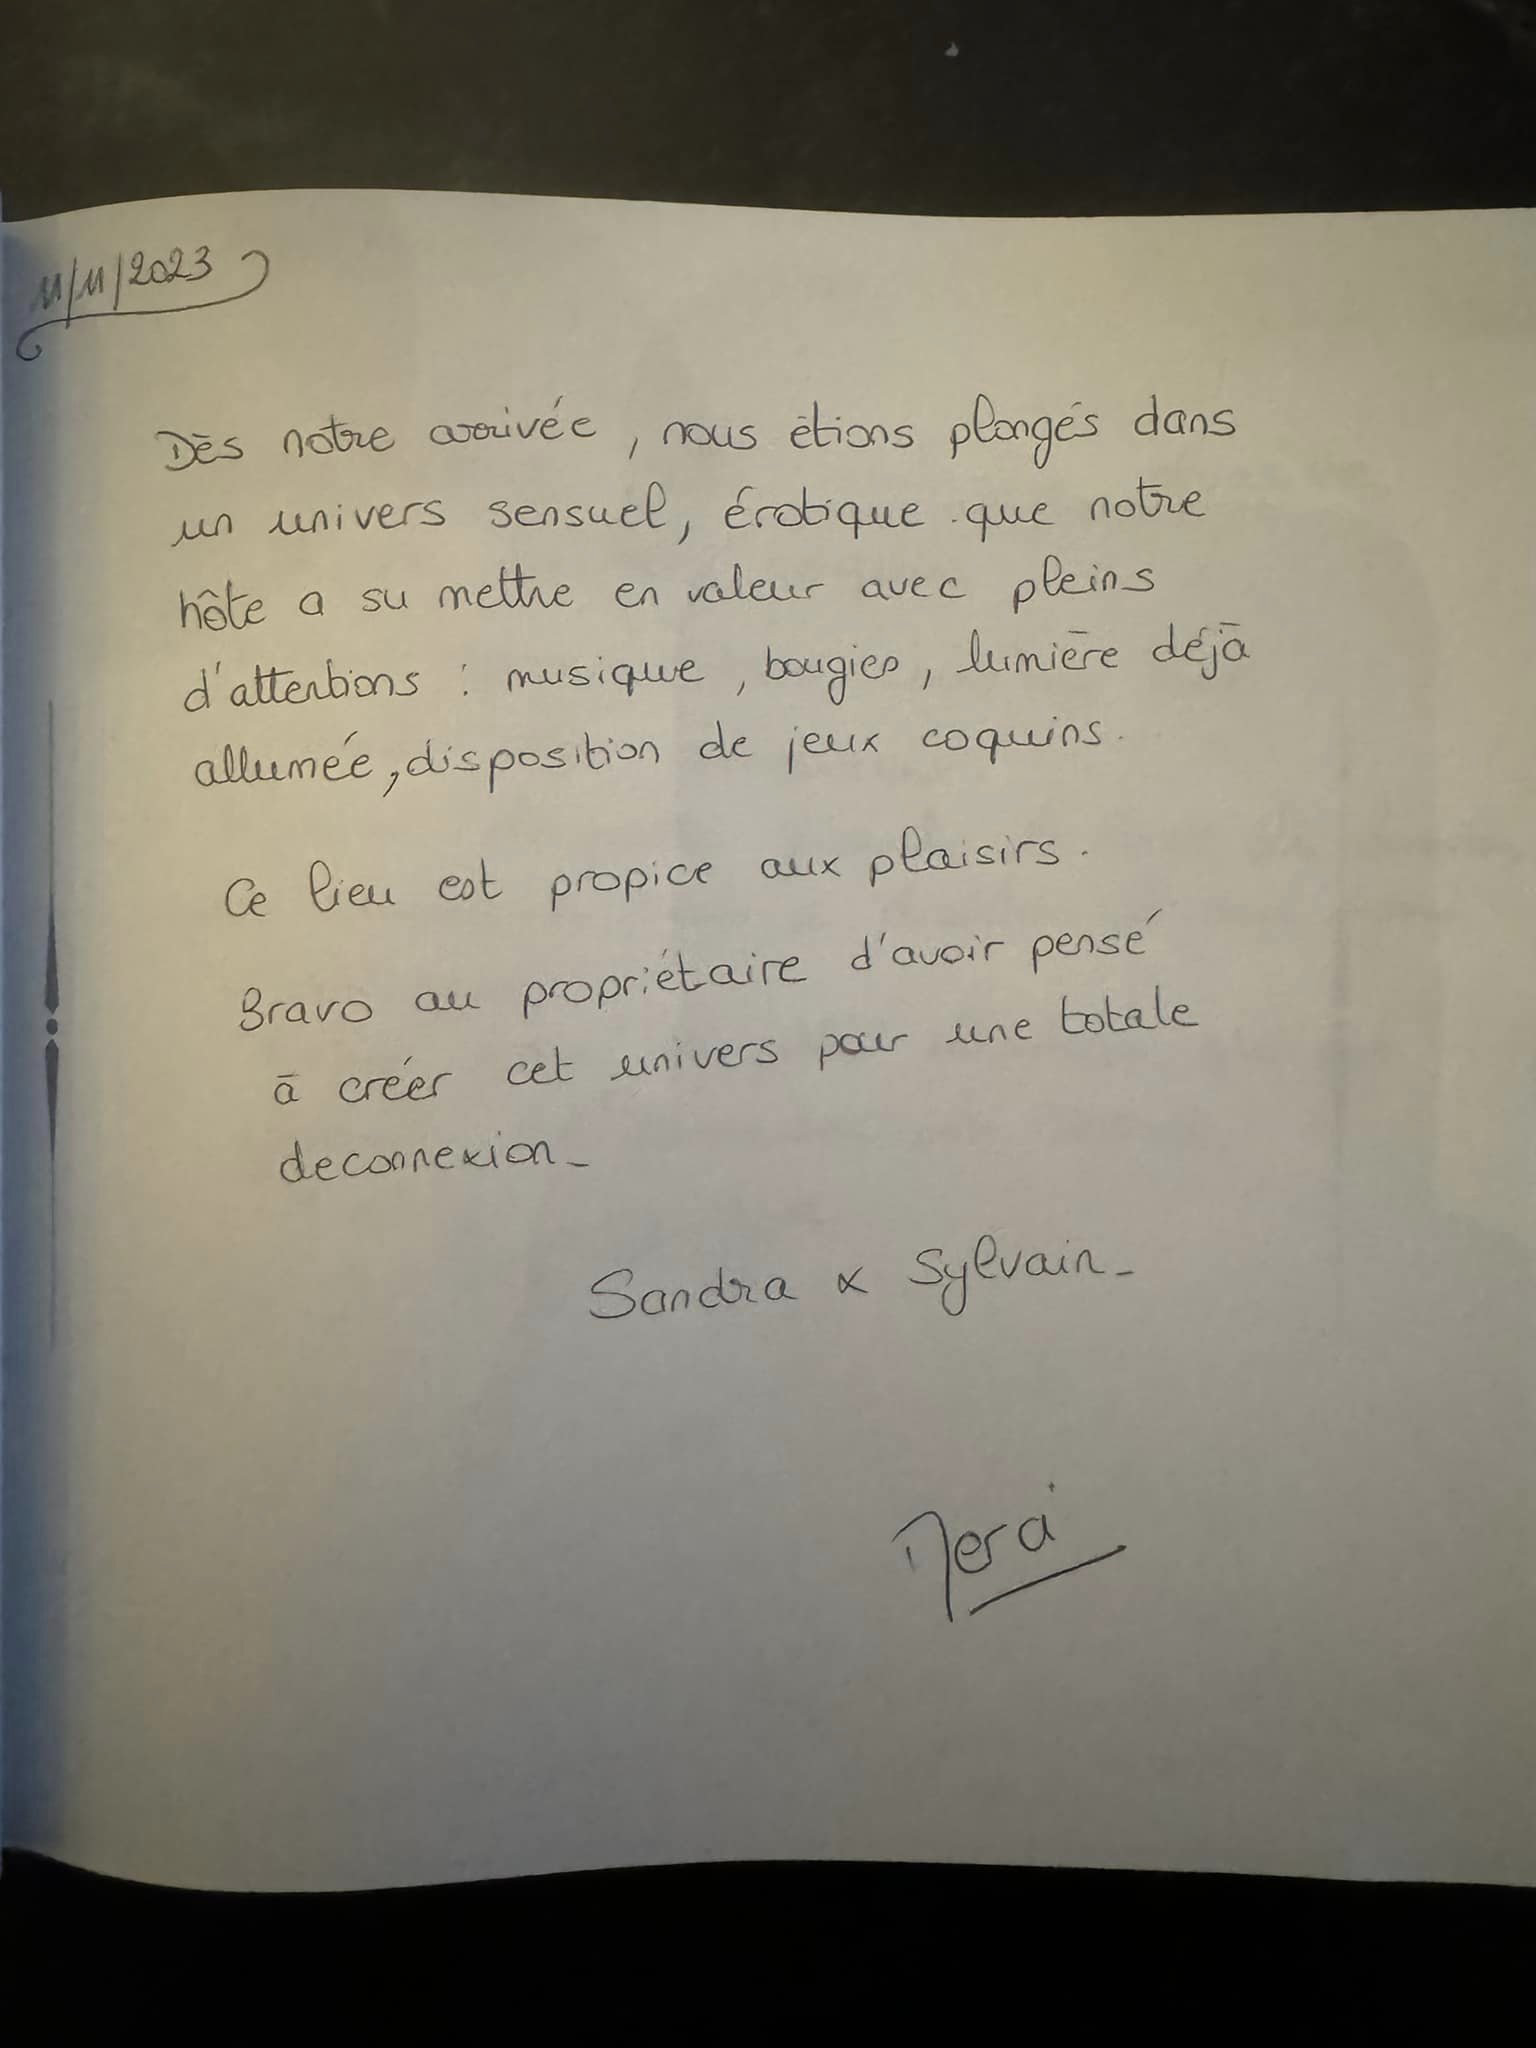 11/11/2023
Dès notre arrivée, nous étions plongés dans
un univers sensuel, érotique que notre
hôte a su mettre en valeur avec pleins
d'attentions : musique, bougies, lumière déjà
allumée, disposition de jeux coquins.
Ce lieu est propice aux plaisirs.
Bravo au propriétaire d'avoir pensé
à créer cet univers pour une totale
deconnexion_
Sandra & Sylvain_
Merci